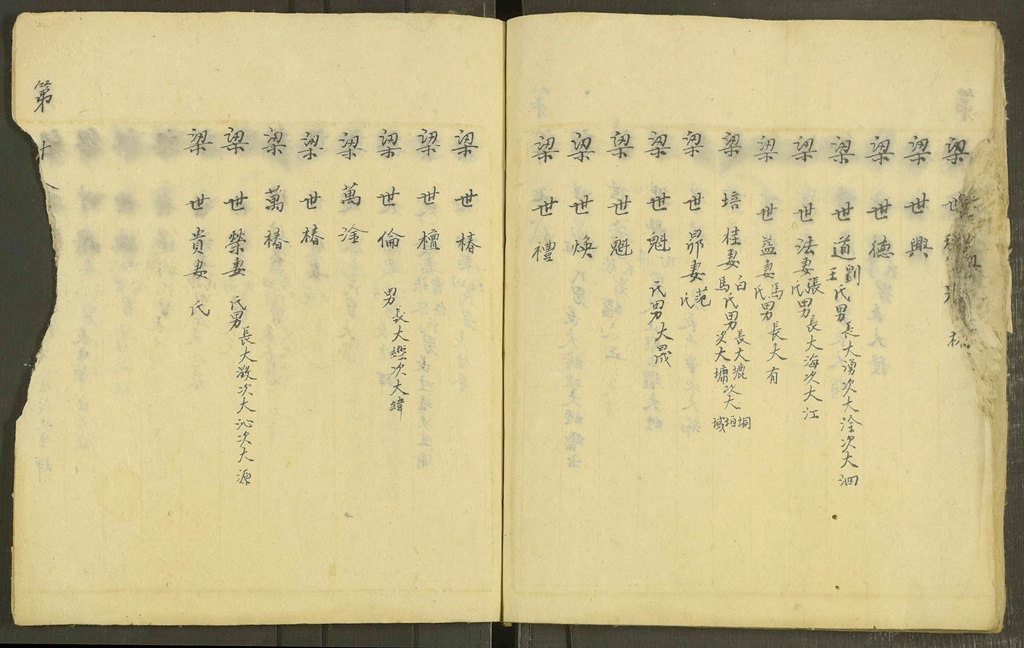 梁世
梁世興
梁世德
梁世道劉王氏男長大湧次大淦次大泗
梁世法妻張氏男長大海次大江
梁世益妻馬氏男長大有
梁培桂妻白馬氏男長大墭次大墉次大垣垌域
梁世昴妻范氏
梁世魁 氏男大晟
梁世魁
梁世煥
梁世禮
梁世椿
梁世檀
梁世倫 男長大經次大緯
梁萬淦
梁世椿
梁萬椿
梁世榮妻 氏男長大澂次大沁次大源
梁世貴妻 氏
第十